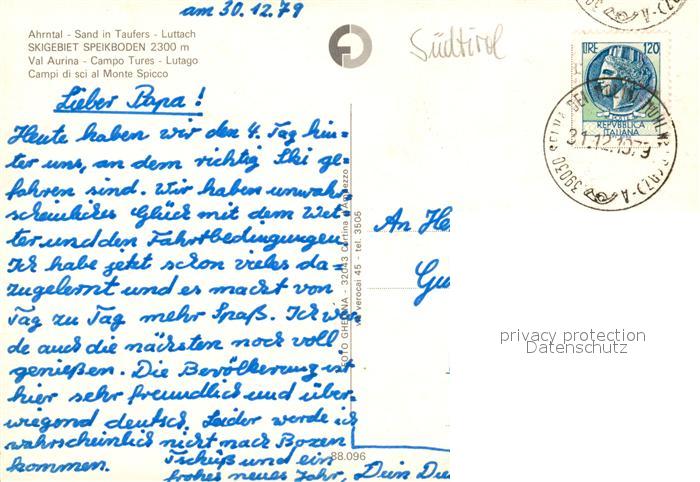 am 30.12.79
Ahrntal - Sand in Taufers - Luttach
SKIGEBIET SPEIKBODEN 2300 m
Val Aurina - Campo Tures - Lutago
Campi di sci al Monte Spicco
Südtirol
LIRE 120
REPVBBLICA
ITALIANA
31.12.1979
39030
Lieber Papa!
Heute haben wir den 4. Tag hin=
ter uns, an dem richtig Ski ge=
fahren sind. Wir haben unwahr=
scheinliches Glück mit dem Wet=
ter und den Fahrtbedingungen
Ich habe jetzt schon vieles da=
zugelernt und es macht von
Tag zu Tag mehr Spaß. Ich wer=
de auch die nächsten noch voll
genießen. Die Bevölkerung ist
hier sehr freundlich und über=
wiegend deutsch. Leider werde ich
wahrscheinlich nicht nach Bozen
kommen. Tschüß und ein
frohes neues Jahr, Dein
FOTO GHEDINA - 32043 Cortina d'Ampezzo
via verocai 45 - tel. 3505
88.096
An He
Gu
privacy protection
Datenschutz